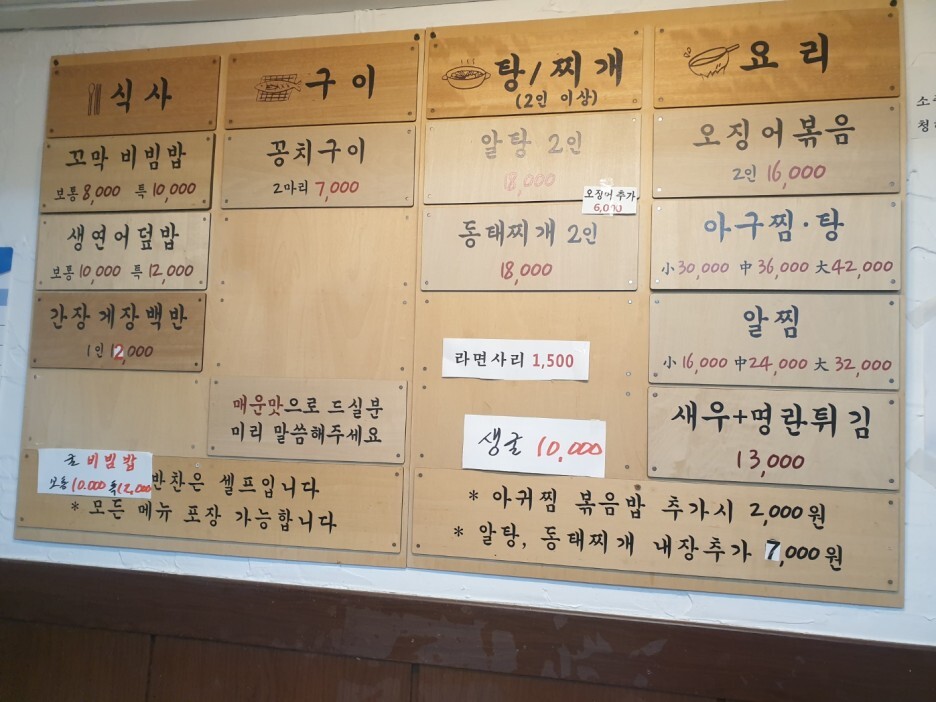 식사
꼬막 비빔밥
보통 8,000 특 10,000
생연어덮밥
보통 10,000 특 12,000
간장게장백반
1인 12,000
굴 비빔밥
보통 10.000 특 12,000
반찬은 셀프입니다
* 모든 메뉴 포장 가능합니다
구이
꽁치구이
2마리 7,000
매운맛으로 드실분
미리 말씀해주세요
탕/찌개
(2인 이상)
알탕 2인
18,000
오징어 추가
6,000
동태찌개 2인
18,000
라면사리 1,500
생굴 10,000
요리
오징어볶음
2인 16,000
아구찜·탕
小 30,000 中 36,000 大 42,000
알찜
小 16,000 中 24,000 大 32,000
새우+명란튀김
13,000
* 아귀찜 볶음밥 추가시 2,000원
* 알탕, 동태찌개 내장추가 7,000원